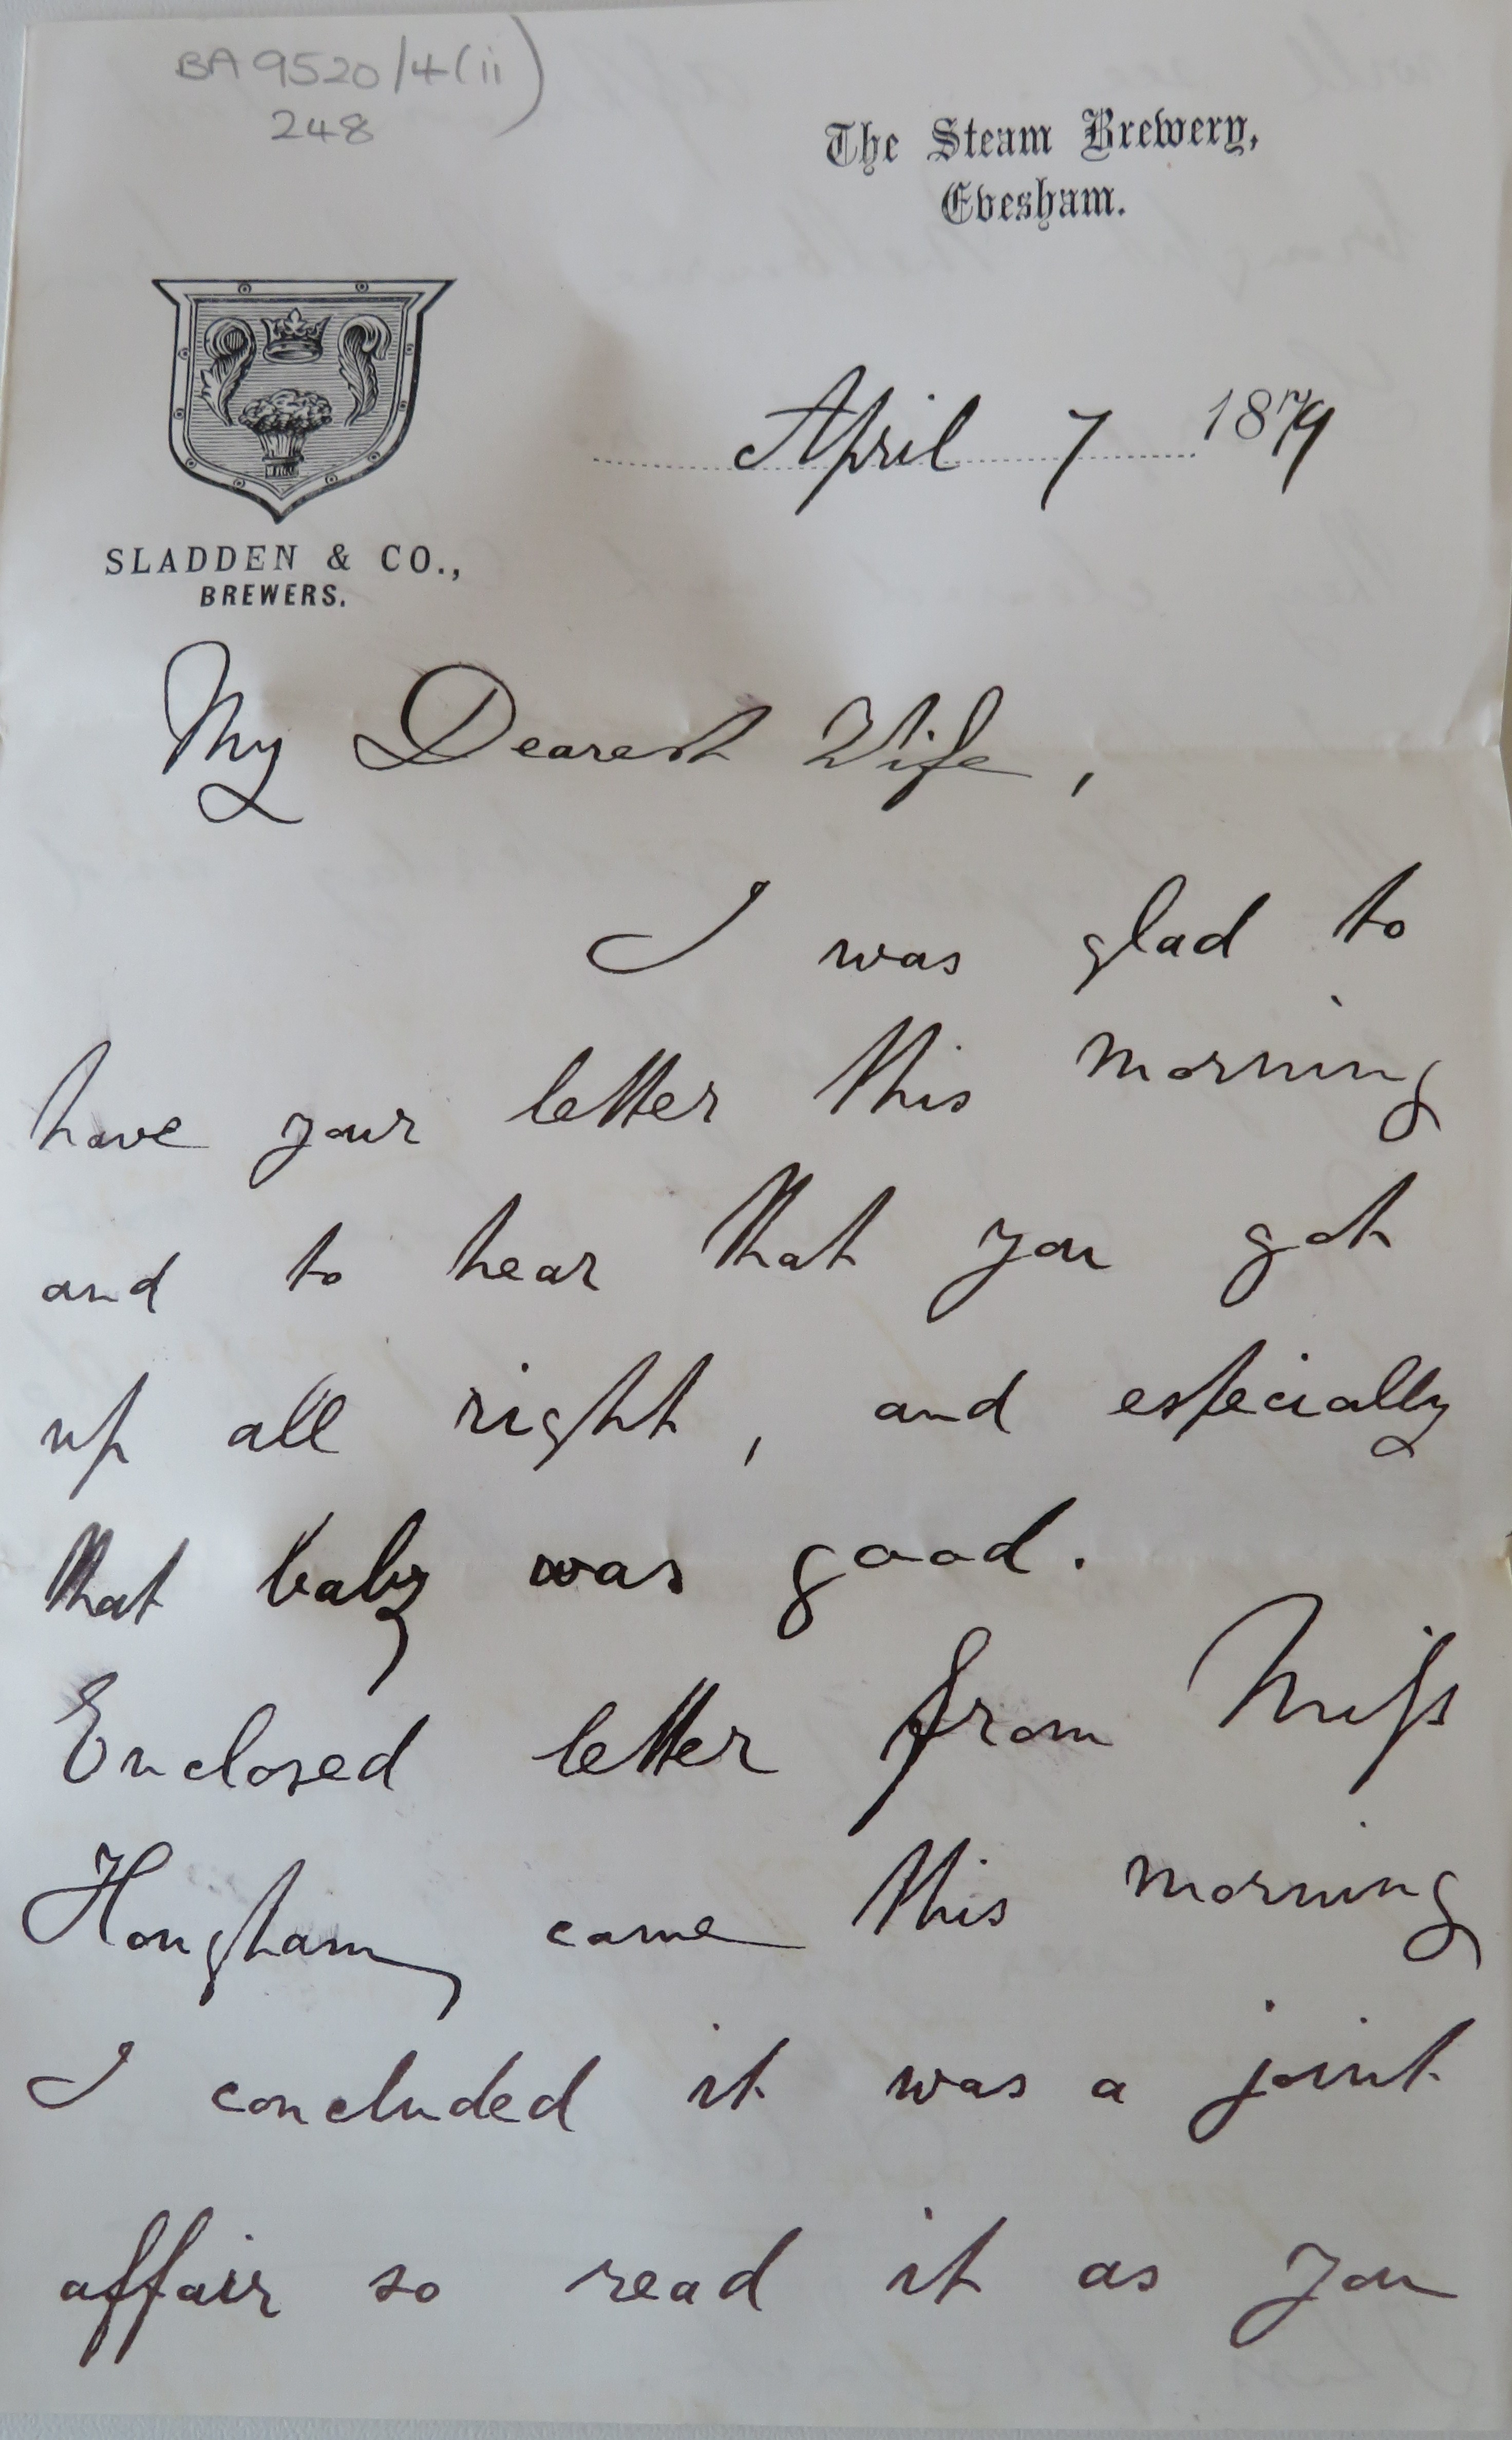 BA 9520/4(ii)
248
The Steam Brewery,
Evesham.
April 7 1879
SLADDEN & CO.,
BREWERS.
My Dearest Wife,
I was glad to
have your letter this morning
and to hear that you got
up all right, and especially
that baby was good.
Enclosed letter from Miss
Hougham came this morning
I concluded it was a joint
affair so read it as you